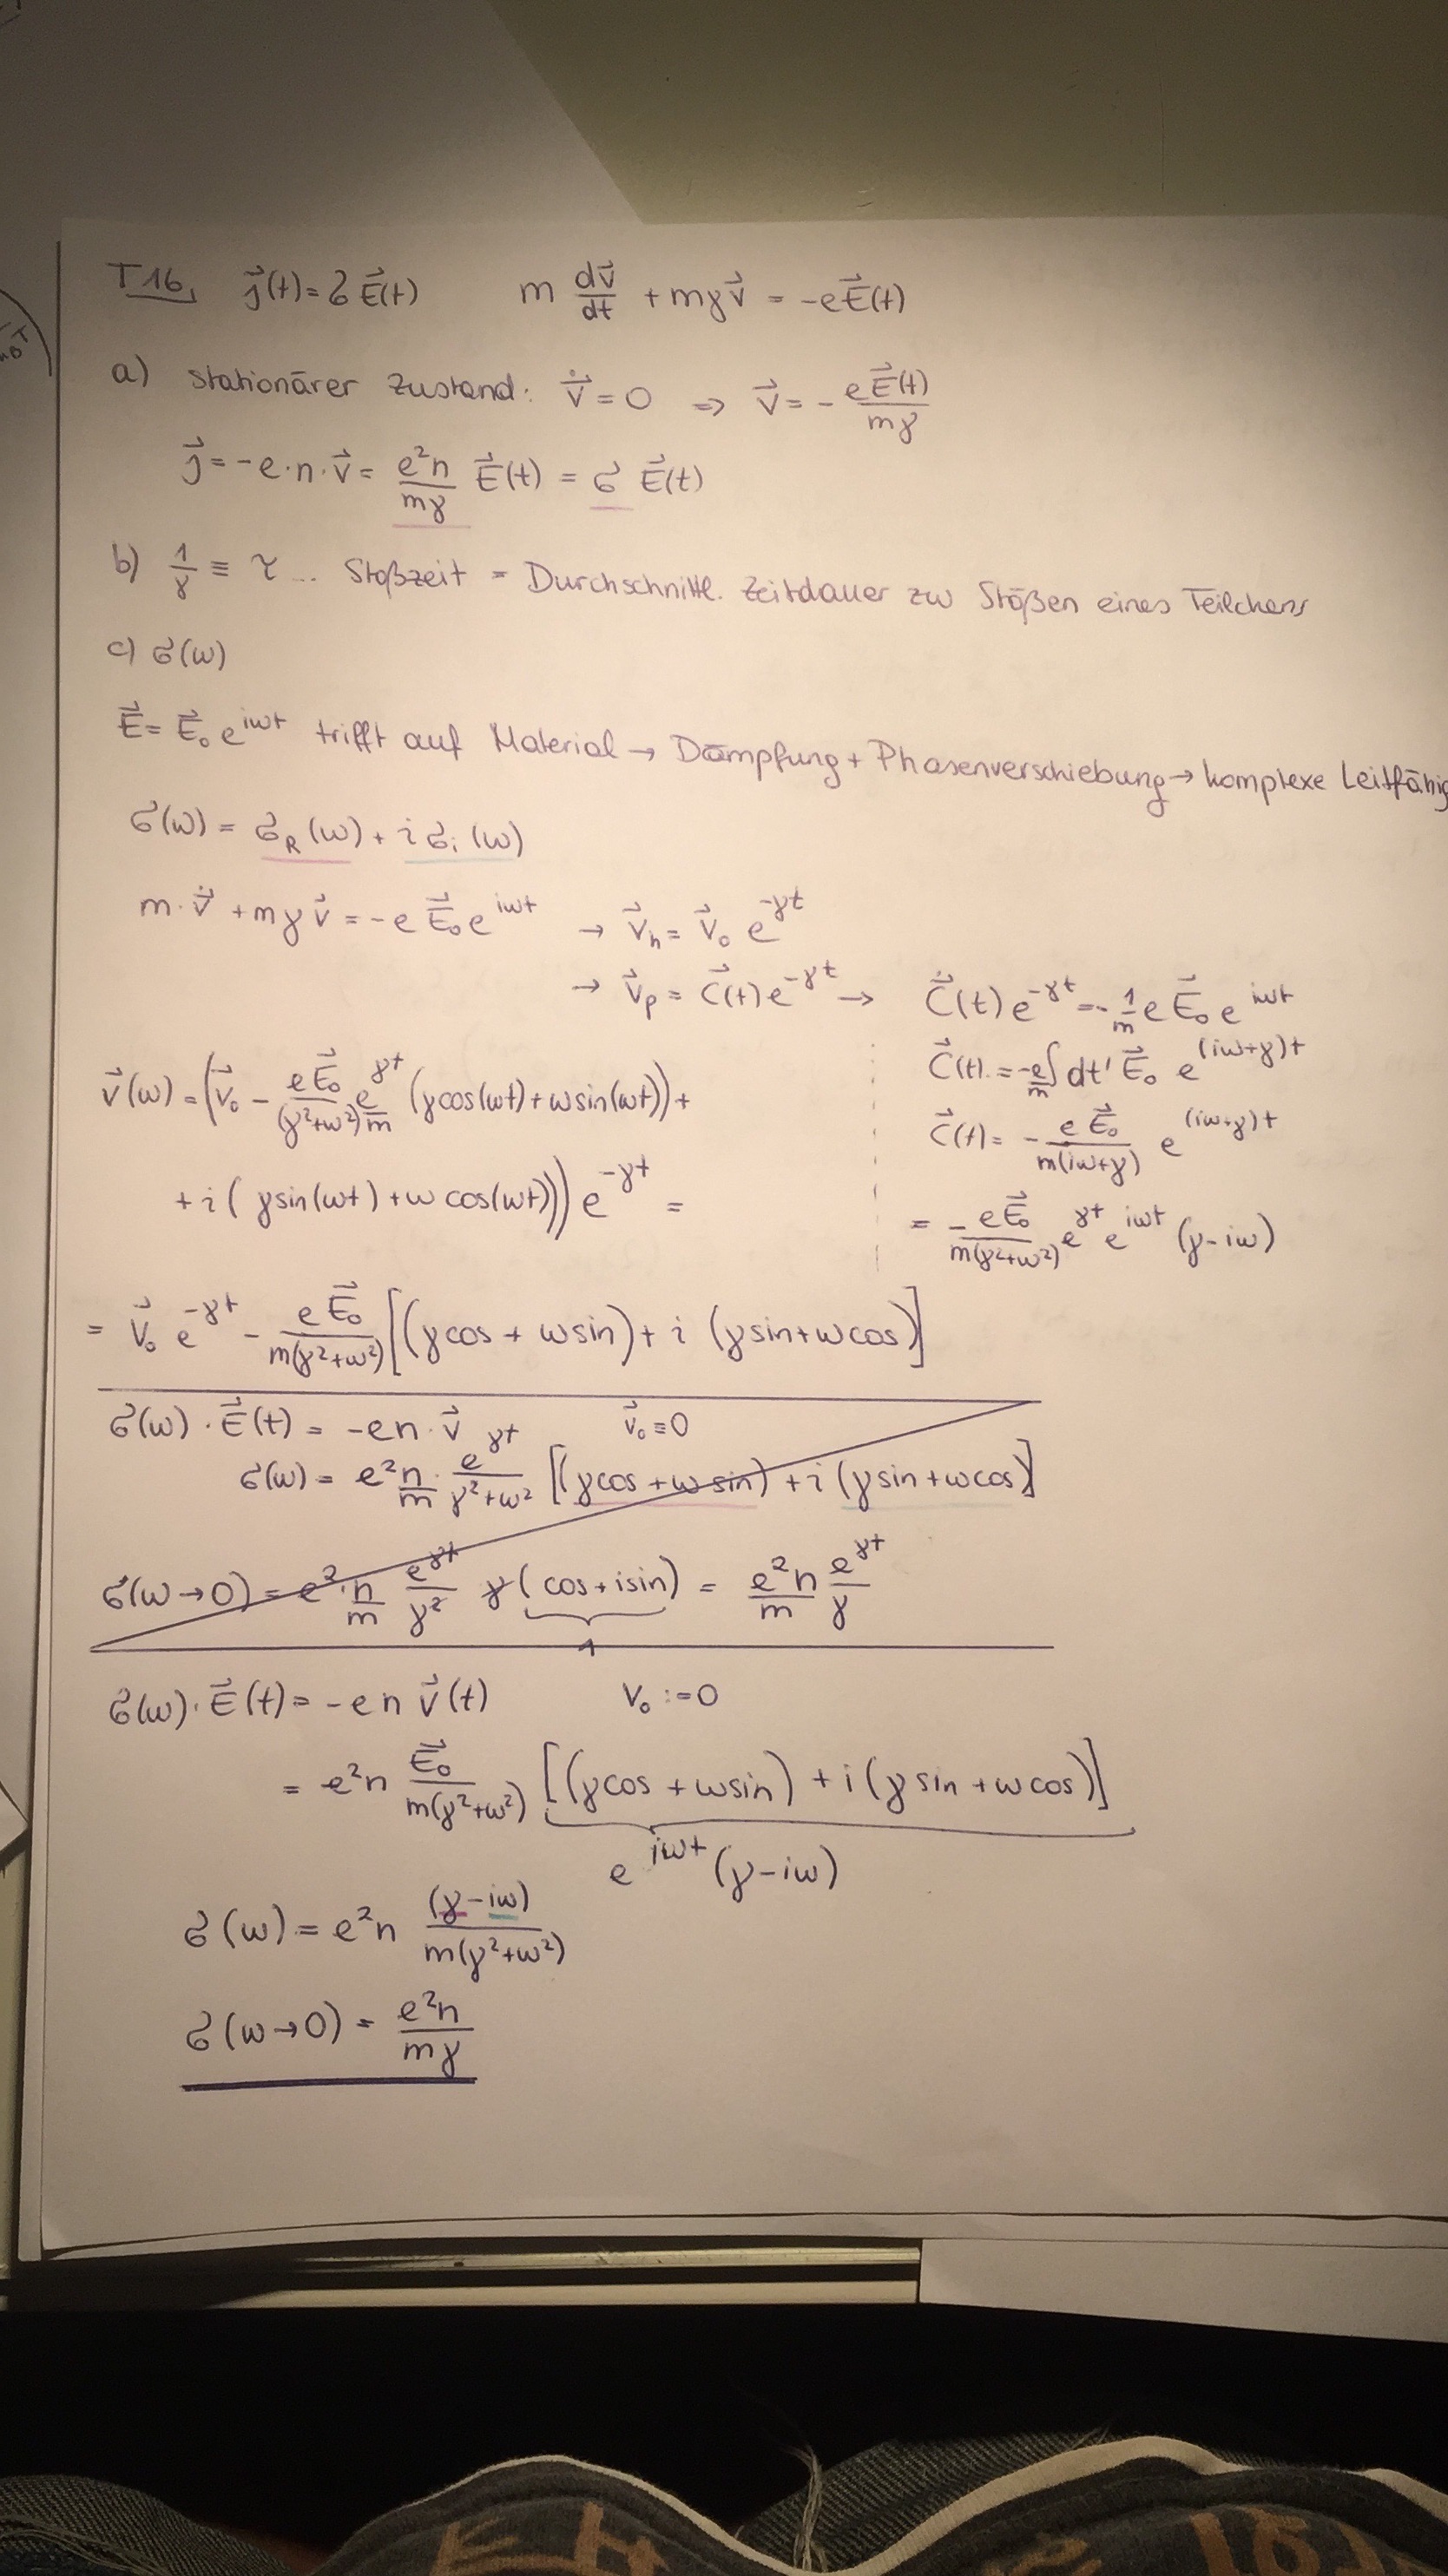 T16, j⃗(t) = σ E⃗(t)   m dv⃗/dt + mγv⃗ = -eE⃗(t)
a) stationärer Zustand: v⃗̇ = 0 ⇒ v⃗ = - eE⃗(t)/mγ
j⃗ = -e·n·v⃗ = e²n/mγ E⃗(t) = σ E⃗(t)
b) 1/γ ≡ τ ... Stoßzeit = Durchschnittl. Zeitdauer zw Stößen eines Teilchens
c) σ(ω)
E⃗ = E⃗₀ e^{iωt} trifft auf Material → Dämpfung + Phasenverschiebung → komplexe Leitfähig
σ(ω) = σ_R(ω) + i σ_i(ω)
m·v⃗̇ + mγv⃗ = -e E⃗₀ e^{iωt} → v⃗_h = v⃗₀ e^{-γt}
→ v⃗_p = C⃗(t) e^{-γt} → C⃗̇(t) e^{-γt} = -1/m e E⃗₀ e^{iωt}
C⃗(t) = -e/m ∫ dt' E⃗₀ e^{(iω+γ)t}
C⃗(t) = - eE⃗₀/m(iω+γ) e^{(iω+γ)t}
= -eE⃗₀/m(γ²+ω²) e^{γt} e^{iωt} (γ-iω)
v⃗(ω) = (v⃗₀ - eE⃗₀/(γ²+ω²) e^{γt}/m (γcos(ωt) + ωsin(ωt)) +
+ i(γsin(ωt) + ωcos(ωt))) e^{-γt} =
= v⃗₀ e^{-γt} - eE⃗₀/m(γ²+ω²) [(γcos + ωsin) + i (γsin + ωcos)]
σ(ω)·E⃗(t) = -en·v⃗   v⃗₀ ≡ 0
σ(ω) = e²n/m · e^{γt}/γ²+ω² [(γcos + ωsin) + i(γsin + ωcos)]
σ(ω→0) = e²·n/m e^{γt}/γ² γ(cos + isin) = e²n/m e^{γt}/γ
1
σ(ω)·E⃗(t) = -en v⃗(t)   v₀ := 0
= e²n E⃗₀/m(γ²+ω²) [(γcos + ωsin) + i(γsin + ωcos)]
e^{iωt}(γ-iω)
σ(ω) = e²n (γ-iω)/m(γ²+ω²)
σ(ω→0) = e²n/mγ